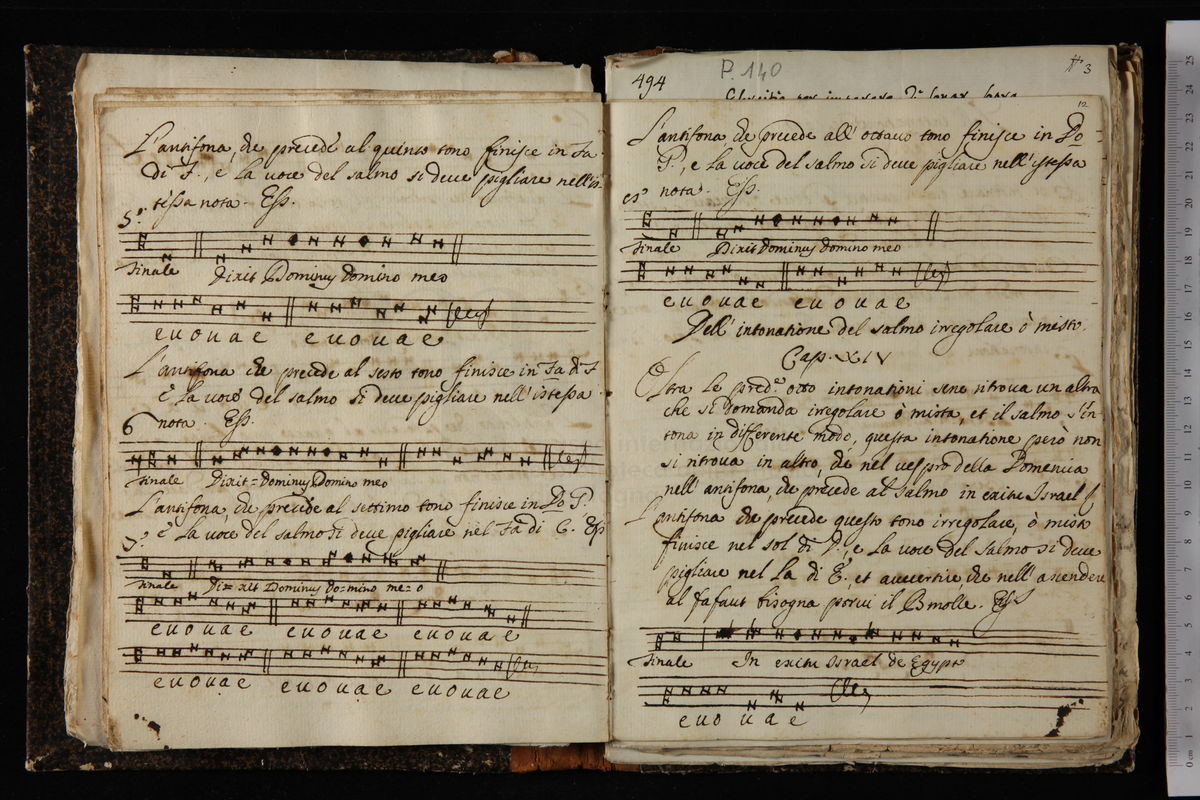 L'antifona, che precede al quinto tono finisce in Fa
di F., e la voce del salmo si deve pigliare nell'is
tessa nota. Ess.
5.º
finale Dixit Dominus Domino meo
euouae euouae
L'antifona che precede al sesto tono finisce in Fa di F
e la voce del salmo si deve pigliare nell'istessa
6 nota. Ess.
finale Dixit=Dominus Domino meo
L'antifona, che precede al settimo tono finisce in Do
e la voce del salmo si deve pigliare nel Fa di C. Ess
7.º
finale Di=xit Dominus Do=mino me=o
euouae euouae euouae
euouae euouae euouae
494 P. 140 3
12
L'antifona, che precede all'ottavo tono finisce in Do
e la voce del salmo si deve pigliare nell'istessa
nota. Ess.
finale Dixit Dominus Domino meo
euouae euouae
Dell'intonatione del salmo irregolare ò misto.
Cap. XIV
Oltra le pred.e otto intonationi sene ritrova un altra
che si domanda irregolare ò mista, et il salmo s'in
tona in differente modo, questa intonatione però non
si ritrova in altro, che nel vespro della Domenica
nell'antifona, che precede al salmo in exitu Israel
L'antifona che precede questo tono irregolare, ò misto
finisce nel sol di e la voce del salmo si deve
pigliare nel La di E., et avvertire, che nell'ascendere
al fafaut bisogna porvi il Bmolle. Ess
finale In exitu Israel de Egypto
euouae